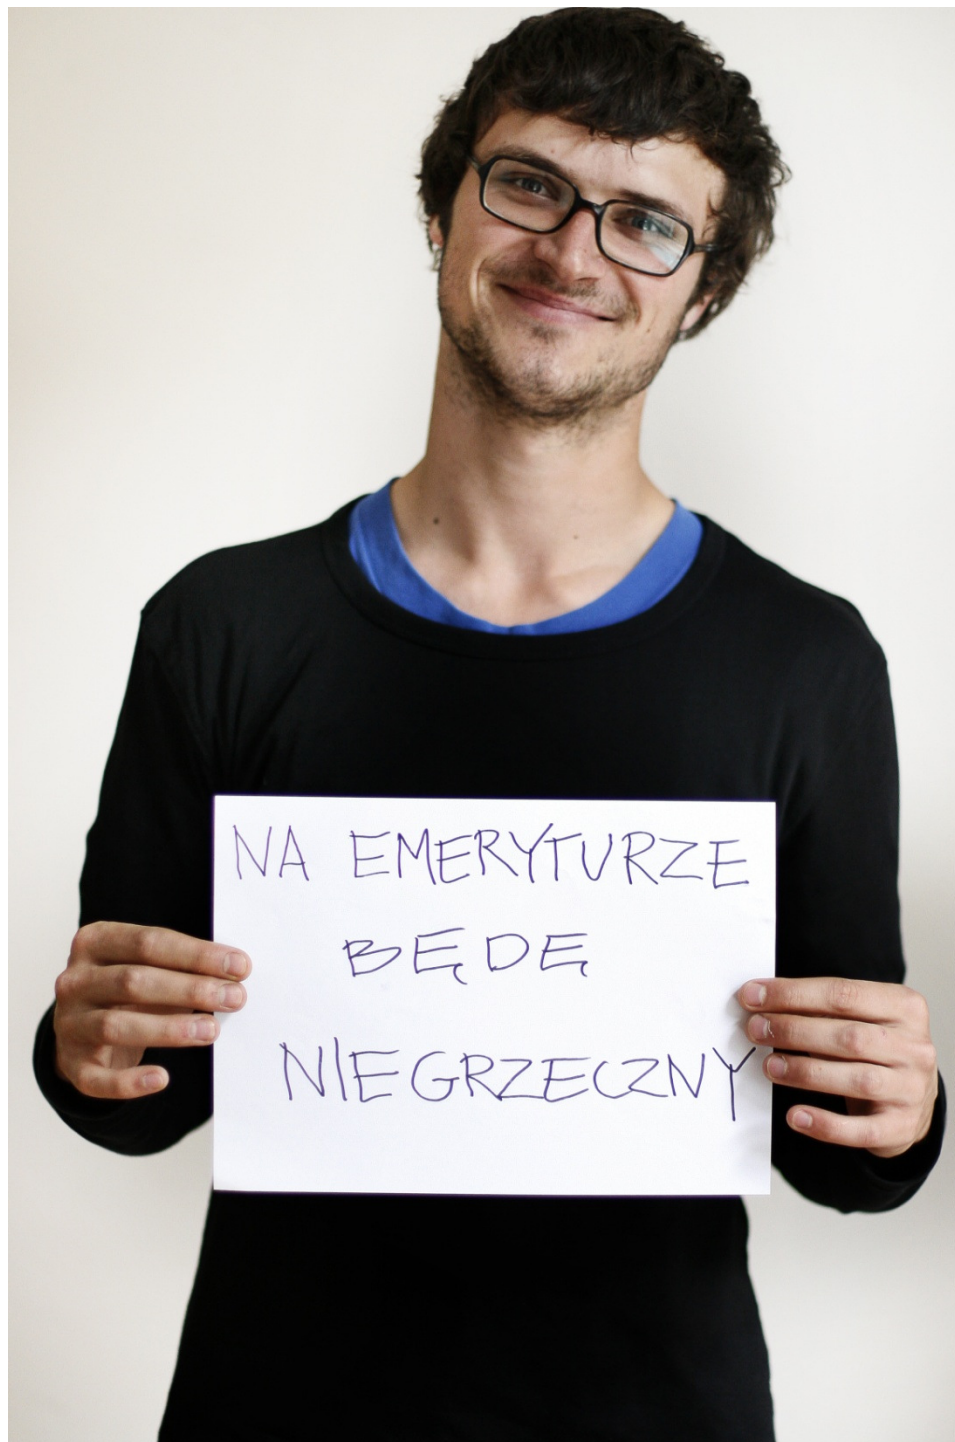 NA EMERYTURZE
BĘDĘ
NIEGRZECZNY